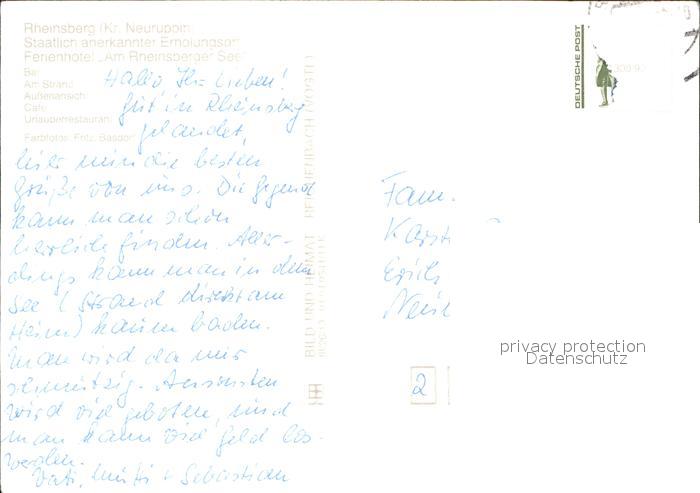 Rheinsberg (Kr. Neuruppin)
Staatlich anerkannter Erholungsort
Ferienhotel „Am Rheinsberger See"
Bar
Am Strand
Außenansicht
Café
Urlauberrestaurant
Farbfotos: Fritz,
Hallo Ihr Lieben!
Gut in Rheinsberg
gelandet,
hier nun die besten
Grüße von uns. Die Gegend
kann man schon
herrlich finden. Aller-
dings kann man in dem
See (Strand direkt am
Heim) kaum baden.
Man wird da nur
schmutzig. Ansonsten
wird viel geboten, und
man kann viel Geld los-
werden.
Vati, Mutti + Sebastian
BILD UND HEIMAT REICHENBACH (VOGTL)
DEUTSCHE POST
Fam.
Erich
2
privacy protection
Datenschutz